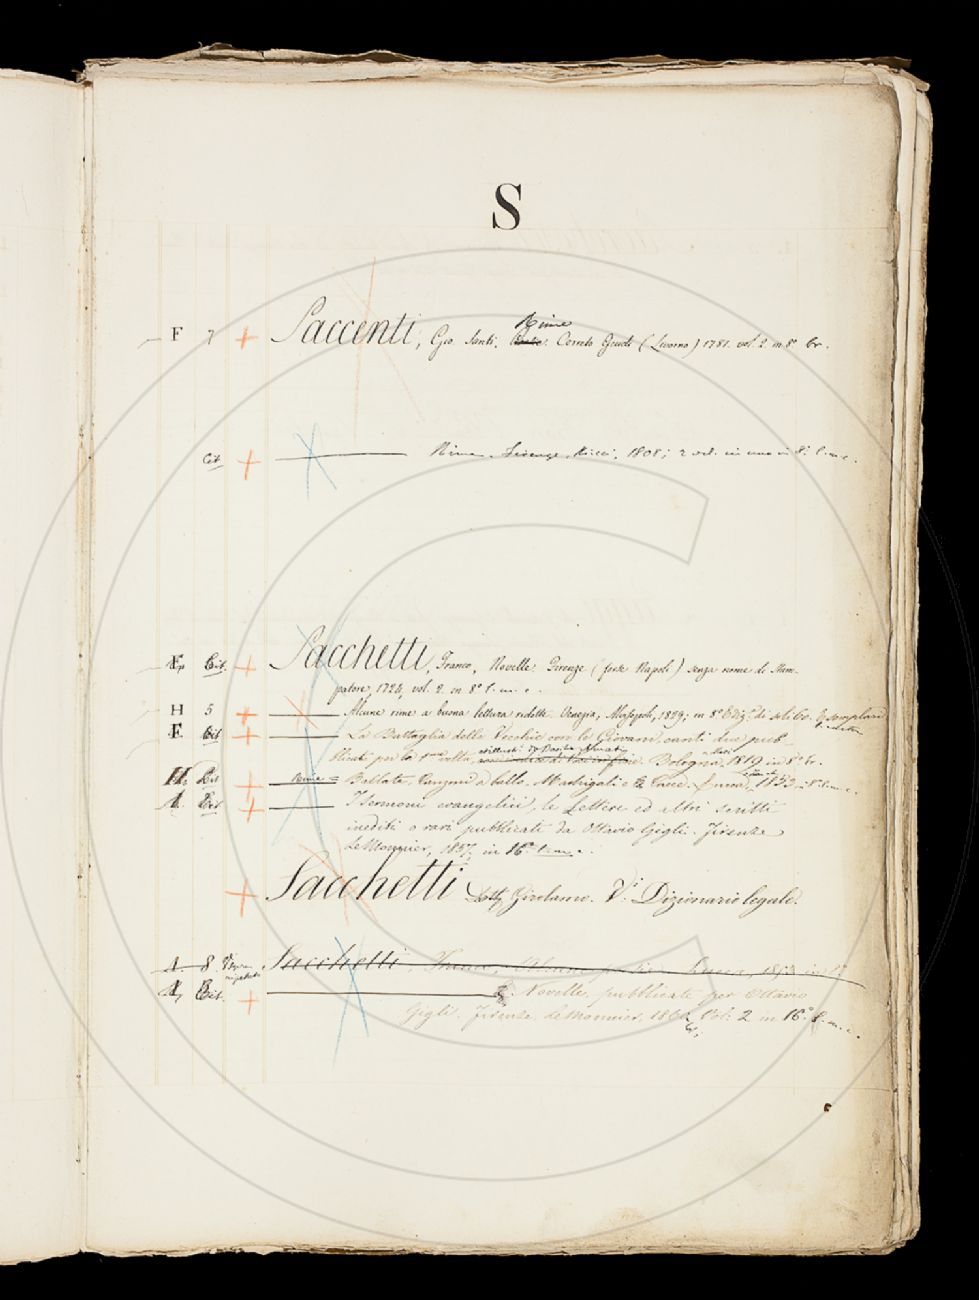 S
Rime
F 7 + Saccenti, Gio. Santi. Cerreto Guidi (Livorno) 1781. vol. 2. in 8° br.
Cit + Rime. Firenze, Ricci, 1808; 2 vol. in uno in 8°
F, Cit. + Sacchetti, Franco, Novelle. Firenze (forse Napoli) senza nome di Stam-
patore, 1724, vol. 2. in 8°
H 5 + Alcune rime a buona lettura ridotte. Venezia, 1829; in 8° Ediz.e di soli 60. Esemplari
F Cit + La Battaglia delle Vecchie con le Giovani, canti due pub-
blicati per la 1ma volta, Bologna, Masi 1819 in 8° br.
H. Cit + Rime = Ballate, Canzoni a ballo, Madrigali e Cacce. Lucca, 1853, 8°
Cit + I Sermoni evangelici, le Lettere ed altri scritti
inediti o rari pubblicati da Ottavio Gigli. Firenze
Le Monnier, 1857, in 16°
+ Sacchetti Girolamo. Vi. Dizionario legale.
1 8 Sacchetti, Franco, Lucca, 1853
Cit. + Novelle, pubblicate per Ottavio
Gigli. Firenze, Le Monnier, Vol: 2 in 16°